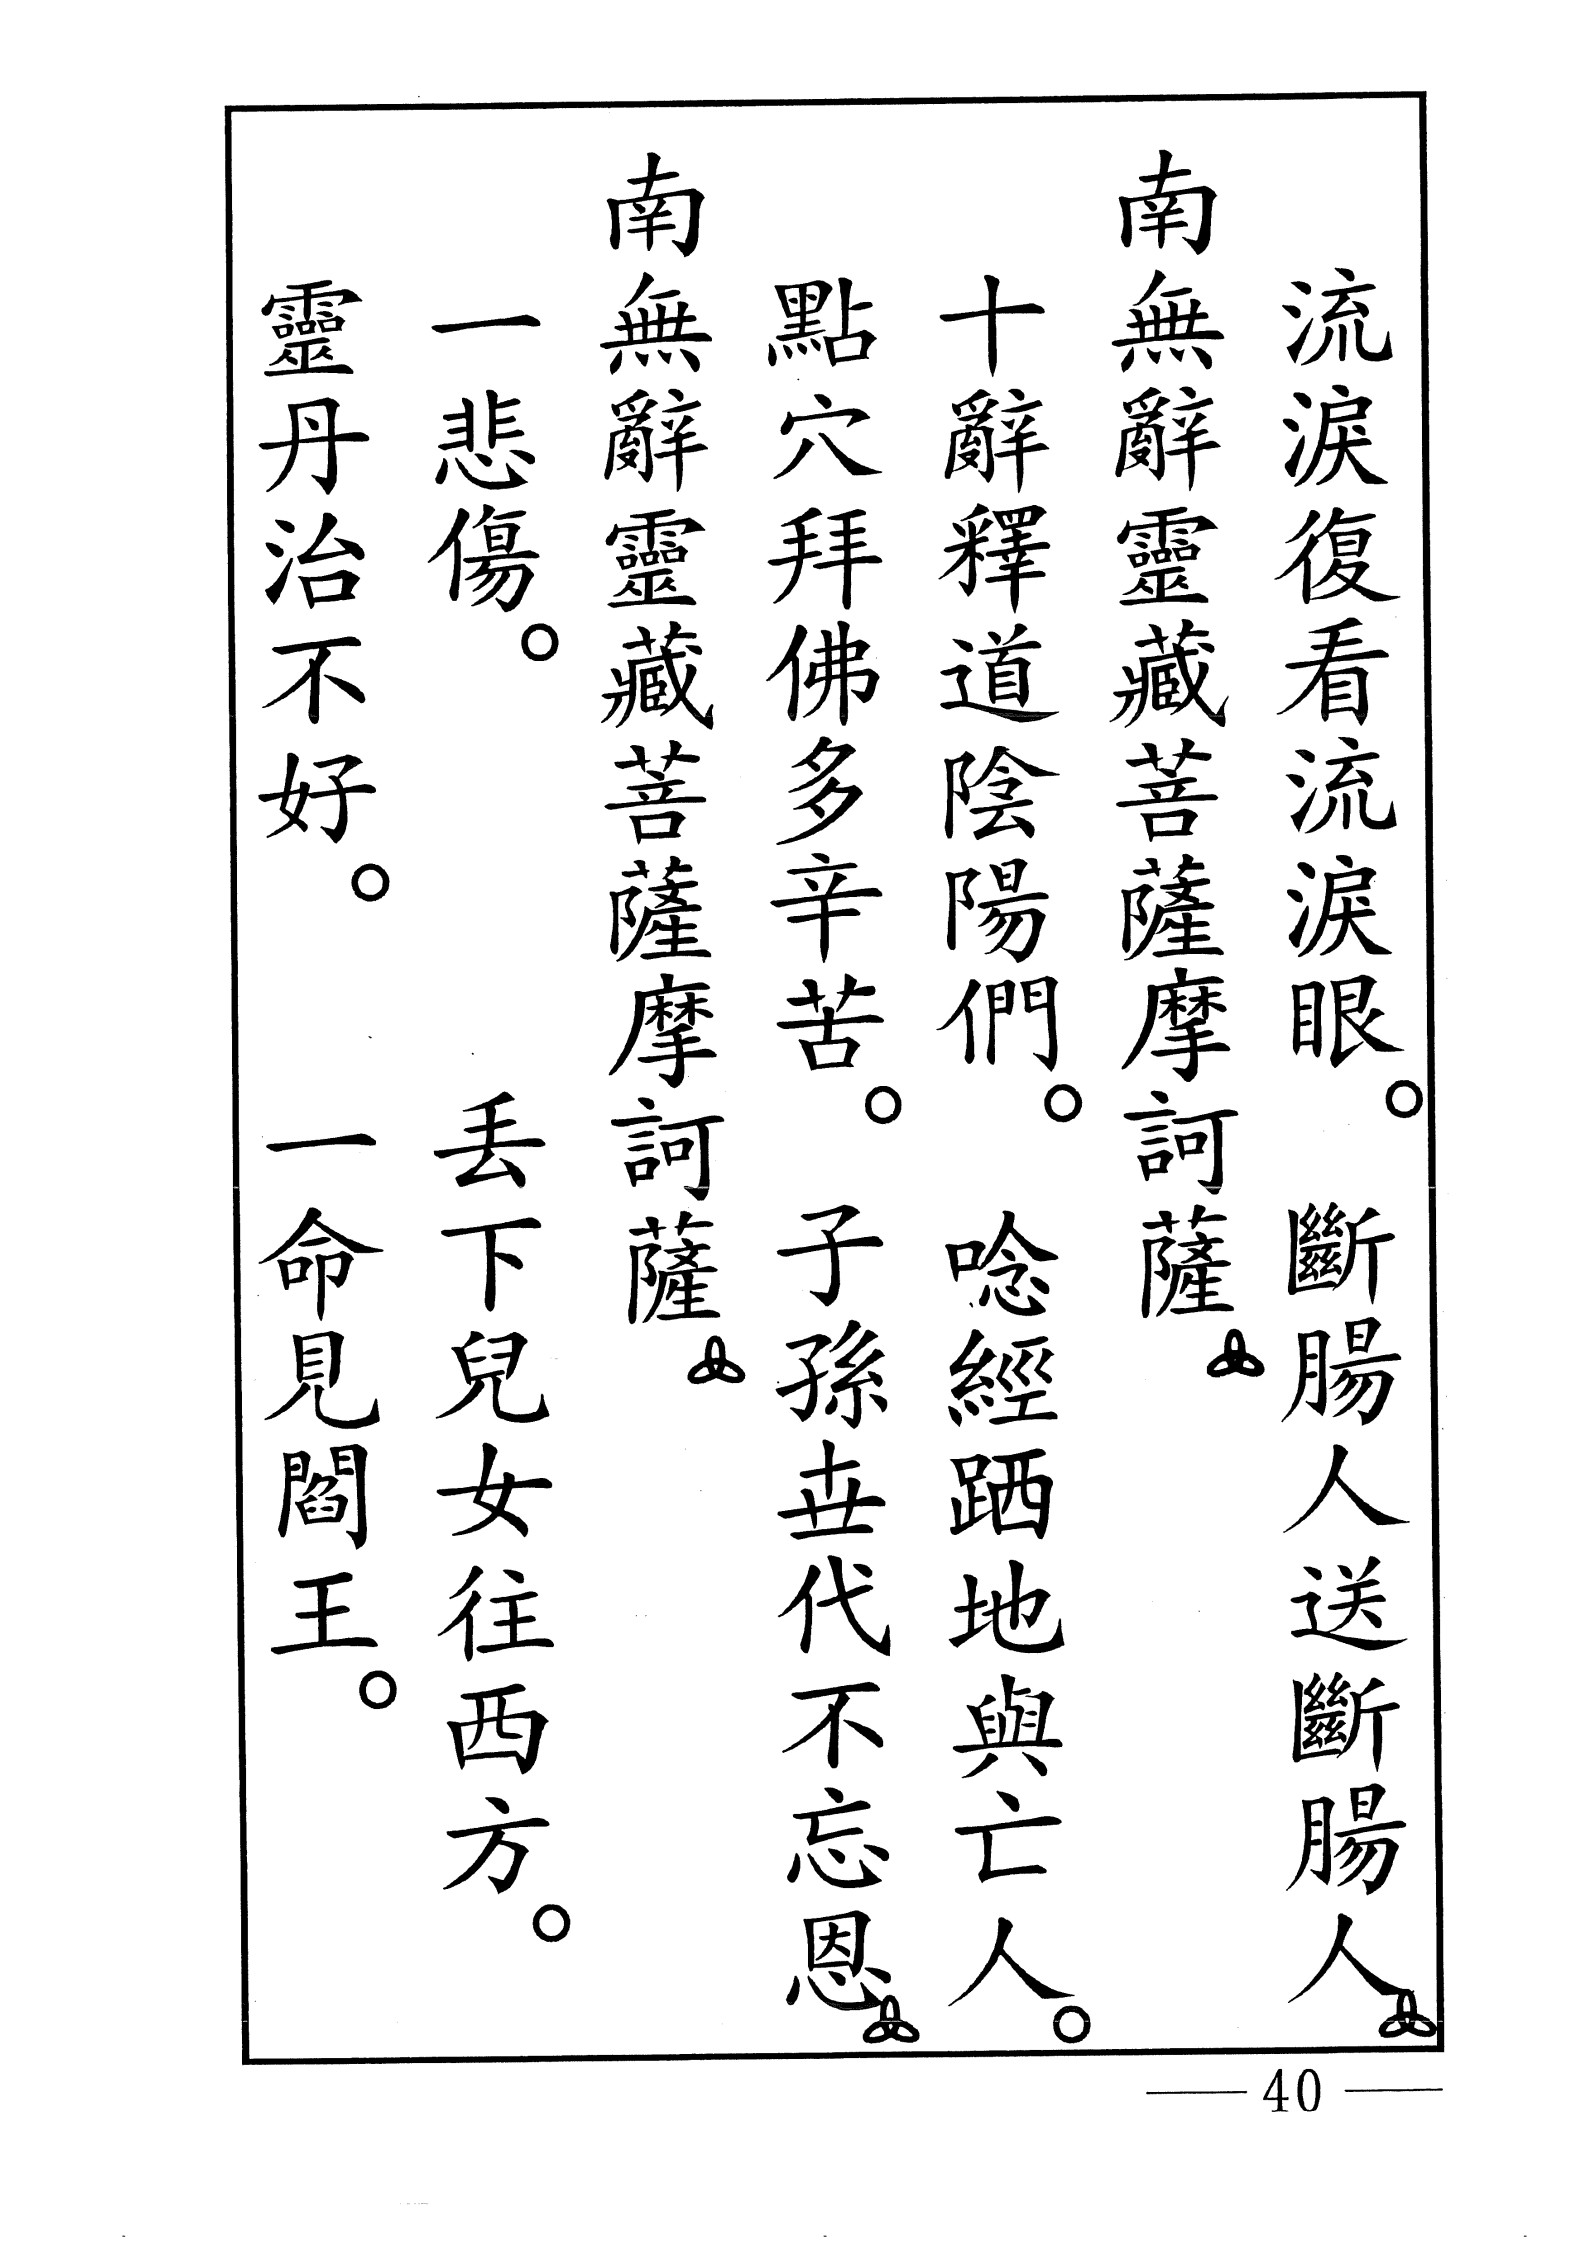 流淚復看流淚眼。　斷腸人送斷腸人
南無辭靈藏菩薩摩訶薩
十辭釋道陰陽們。　唸經跴地與亡人。
點穴拜佛多辛苦。　子孫世代不忘恩
南無辭靈藏菩薩摩訶薩
一悲傷。　丢下兒女往西方。
靈丹治不好。　一命見閻王。
40